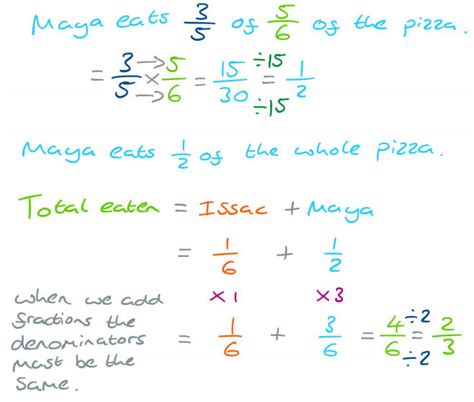 Maya eats 3/5 of 5/6 of the pizza.
= 3/5 × 5/6 = 15/30 = 1/2
÷15
÷15
Maya eats 1/2 of the whole pizza.
Total eaten = Issac + Maya
= 1/6 + 1/2
×1 ×3
= 1/6 + 3/6 = 4/6 = 2/3
÷2
÷2
when we add
fractions the
denominators
must be the
same.